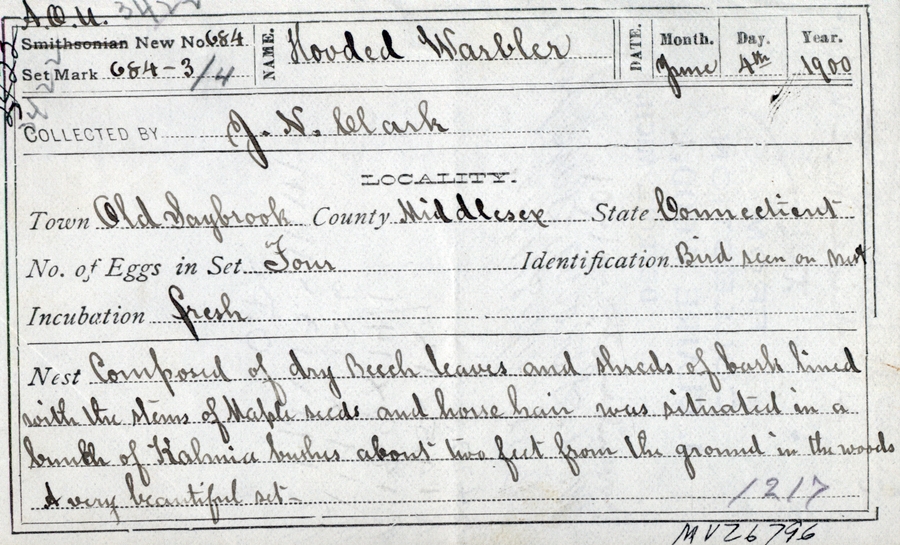 A.O.U. 3422
Smithsonian New No. 684 NAME. Hooded Warbler DATE. Month. Day. Year.
Set Mark 684-3/4 June 4th 1900
COLLECTED BY J. N. Clark
LOCALITY.
Town Old Saybrook County Middlesex State Connecticut
No. of Eggs in Set Four Identification Bird seen on nest
Incubation fresh
Nest Composed of dry Beech leaves and shreds of bark lined
with the stems of Maple seeds and horse hair was situated in a
bunch of Kalmia bushes about two feet from the ground in the woods
A very beautiful set-
1217
MVZ6796